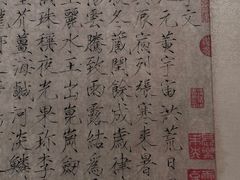 文
元黃宇宙洪荒日
辰宿列張寒來暑
冬藏閏餘成歲律
雲騰致雨露結為
麗水玉出崑岡劍
珠稱夜光果珍李
芥薑海鹹河淡鱗